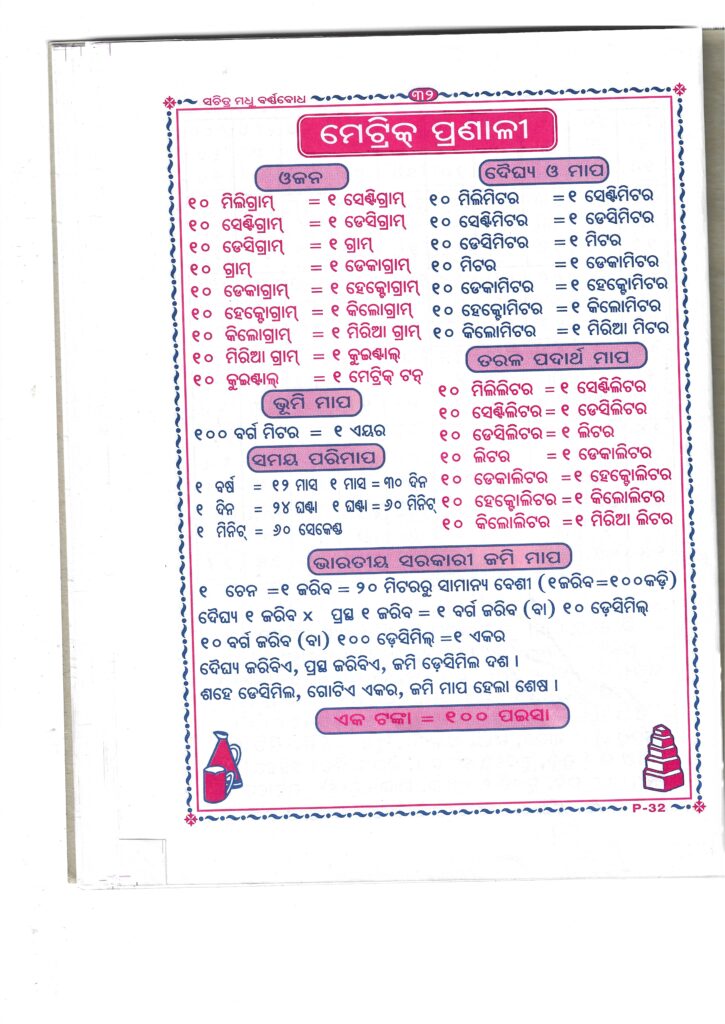 ସଚିତ୍ର ମଧୁ ବର୍ଷବୋଧ
୩୨
ମେଟ୍ରିକ୍ ପ୍ରଣାଳୀ
ଓଜନ
୧୦ ମିଲିଗ୍ରାମ୍ = ୧ ସେଣ୍ଟିଗ୍ରାମ୍
୧୦ ସେଣ୍ଟିଗ୍ରାମ୍ = ୧ ଡେସିଗ୍ରାମ୍
୧୦ ଡେସିଗ୍ରାମ୍ = ୧ ଗ୍ରାମ୍
୧୦ ଗ୍ରାମ୍ = ୧ ଡେକାଗ୍ରାମ୍
୧୦ ଡେକାଗ୍ରାମ୍ = ୧ ହେକ୍ଟୋଗ୍ରାମ୍
୧୦ ହେକ୍ଟୋଗ୍ରାମ୍ = ୧ କିଲୋଗ୍ରାମ୍
୧୦ କିଲୋଗ୍ରାମ୍ = ୧ ମିରିଆ ଗ୍ରାମ୍
୧୦ ମିରିଆ ଗ୍ରାମ୍ = ୧ କୁଇଣ୍ଟାଲ୍
୧୦ କୁଇଣ୍ଟାଲ୍ = ୧ ମେଟ୍ରିକ୍ ଟନ୍
ଭୂମି ମାପ
୧୦୦ ବର୍ଗ ମିଟର = ୧ ଏୟର
ସମୟ ପରିମାପ
୧ ବର୍ଷ = ୧୨ ମାସ ୧ ମାସ = ୩୦ ଦିନ
୧ ଦିନ = ୨୪ ଘଣ୍ଟା ୧ ଘଣ୍ଟା = ୬୦ ମିନିଟ୍
୧ ମିନିଟ୍ = ୬୦ ସେକେଣ୍ଡ
ଦୈଘ୍ୟ ଓ ମାପ
୧୦ ମିଲିମିଟର = ୧ ସେଣ୍ଟିମିଟର
୧୦ ସେଣ୍ଟିମିଟର = ୧ ଡେସିମିଟର
୧୦ ଡେସିମିଟର = ୧ ମିଟର
୧୦ ମିଟର = ୧ ଡେକାମିଟର
୧୦ ଡେକାମିଟର = ୧ ହେକ୍ଟୋମିଟର
୧୦ ହେକ୍ଟୋମିଟର = ୧ କିଲୋମିଟର
୧୦ କିଲୋମିଟର = ୧ ମିରିଆ ମିଟର
ତରଳ ପଦାର୍ଥ ମାପ
୧୦ ମିଲିଲିଟର = ୧ ସେଣ୍ଟିଲିଟର
୧୦ ସେଣ୍ଟିଲିଟର = ୧ ଡେସିଲିଟର
୧୦ ଡେସିଲିଟର = ୧ ଲିଟର
୧୦ ଲିଟର = ୧ ଡେକାଲିଟର
୧୦ ଡେକାଲିଟର = ୧ ହେକ୍ଟୋଲିଟର
୧୦ ହେକ୍ଟୋଲିଟର = ୧ କିଲୋଲିଟର
୧୦ କିଲୋଲିଟର = ୧ ମିରିଆ ଲିଟର
ଭାରତୀୟ ସରକାରୀ ଜମି ମାପ
୧ ଚେନ = ୧ ଜରିବ = ୨୦ ମିଟରରୁ ସାମାନ୍ୟ ବେଶୀ (୧ଜରିବ=୧୦୦କଡ଼ି)
ଦୈଘ୍ୟ ୧ ଜରିବ x ପ୍ରସ୍ଥ ୧ ଜରିବ = ୧ ବର୍ଗ ଜରିବ (ବା) ୧୦ ଡ଼େସିମିଲ୍
୧୦ ବର୍ଗ ଜରିବ (ବା) ୧୦୦ ଡ଼େସିମିଲ୍ = ୧ ଏକର
ଦୈଘ୍ୟ ଜରିବିଏ, ପ୍ରସ୍ଥ ଜରିବିଏ, ଜମି ଡ଼େସିମିଲ ଦଶ ।
ଶହେ ଡେସିମିଲ, ଗୋଟିଏ ଏକର, ଜମି ମାପ ହେଲା ଶେଷ ।
ଏକ ଟଙ୍କା = ୧୦୦ ପଇସା
P-32